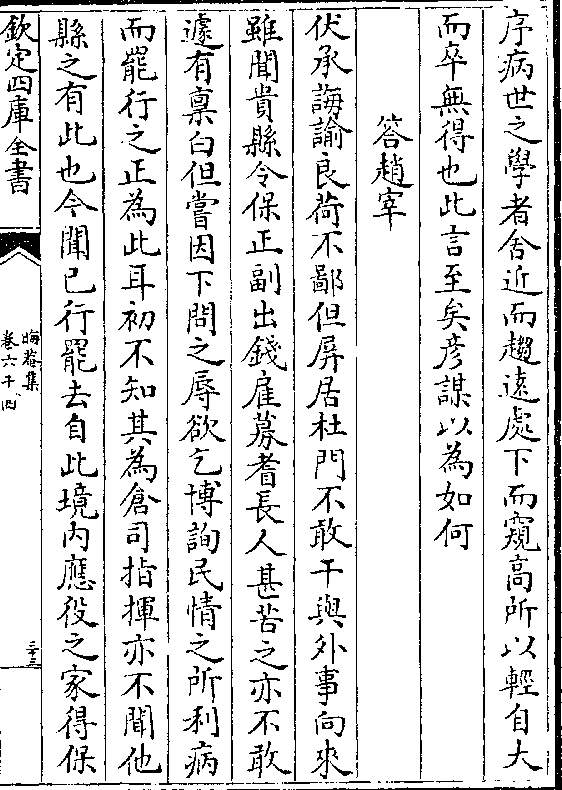 序病世之學者舍近而趨遠處下而窺高所以輕自大
而卒無得也此言至矣彥謀以為如何
答趙宰
伏承誨諭良荷不鄙但屏居杜門不敢干與外事向來
雖聞貴縣令保正副出錢雇募耆長人甚苦之亦不敢
遽有稟白但嘗因下問之辱欲乞博詢民情之所利病
而罷行之正為此耳初不知其為倉司指揮亦不聞他
縣之有此也今聞已行罷去自此境内應役之家得保
欽定四庫全書
晦菴集
卷六十四
三十三